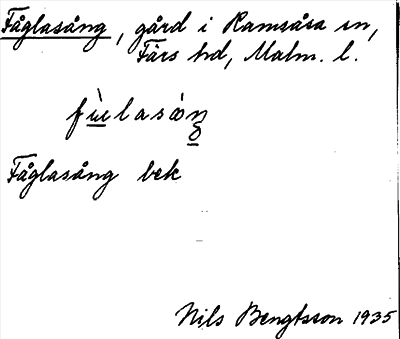 Fåglasång, gård i Ramsåsa sn,
Färs hd, Malm. l.
fùelasóŋ
Fåglasång bek
Nils Bengtsson 1935